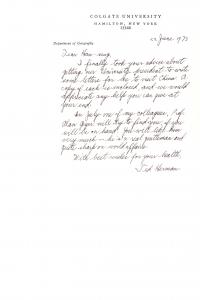 COLGATE UNIVERSITY
HAMILTON, NEW YORK
13346
22 June 1973
Department of Geography
Dear Hsu-
I finally took your advice about
getting our University president to write
some letters for me to visit China. A
copy of each is enclosed, and we would
appreciate any help you can give at
your end.
In July one of my colleagues, Prof.
will try to find you, if you
will be on hand. You will like him
very much - he is a real gentleman and
quite sharp on world affairs.
With best wishes for your health,
Ted Herman